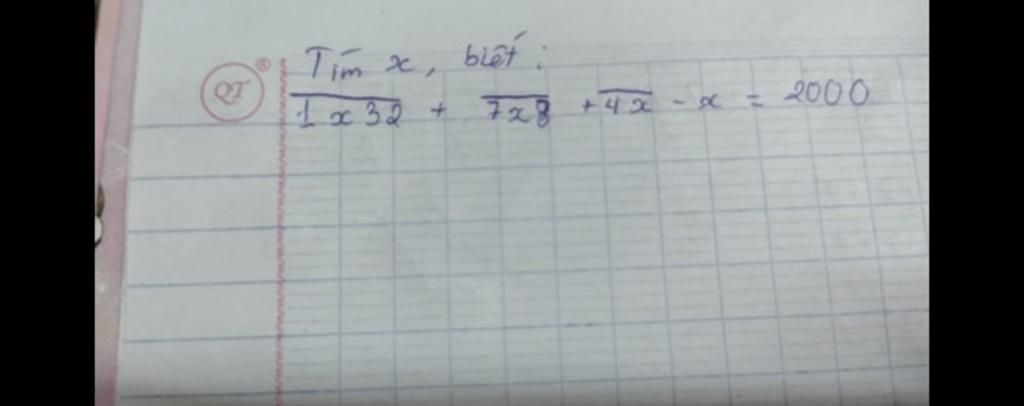 Tìm x, biết :
1x32 + 7x8 + 4x - x = 2000